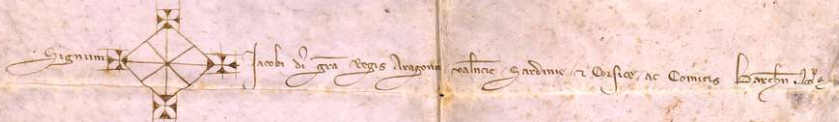 Signum Jacobi di gra Regis Aragonum valncie Sardinie & Corsice ac Comitis Barchn